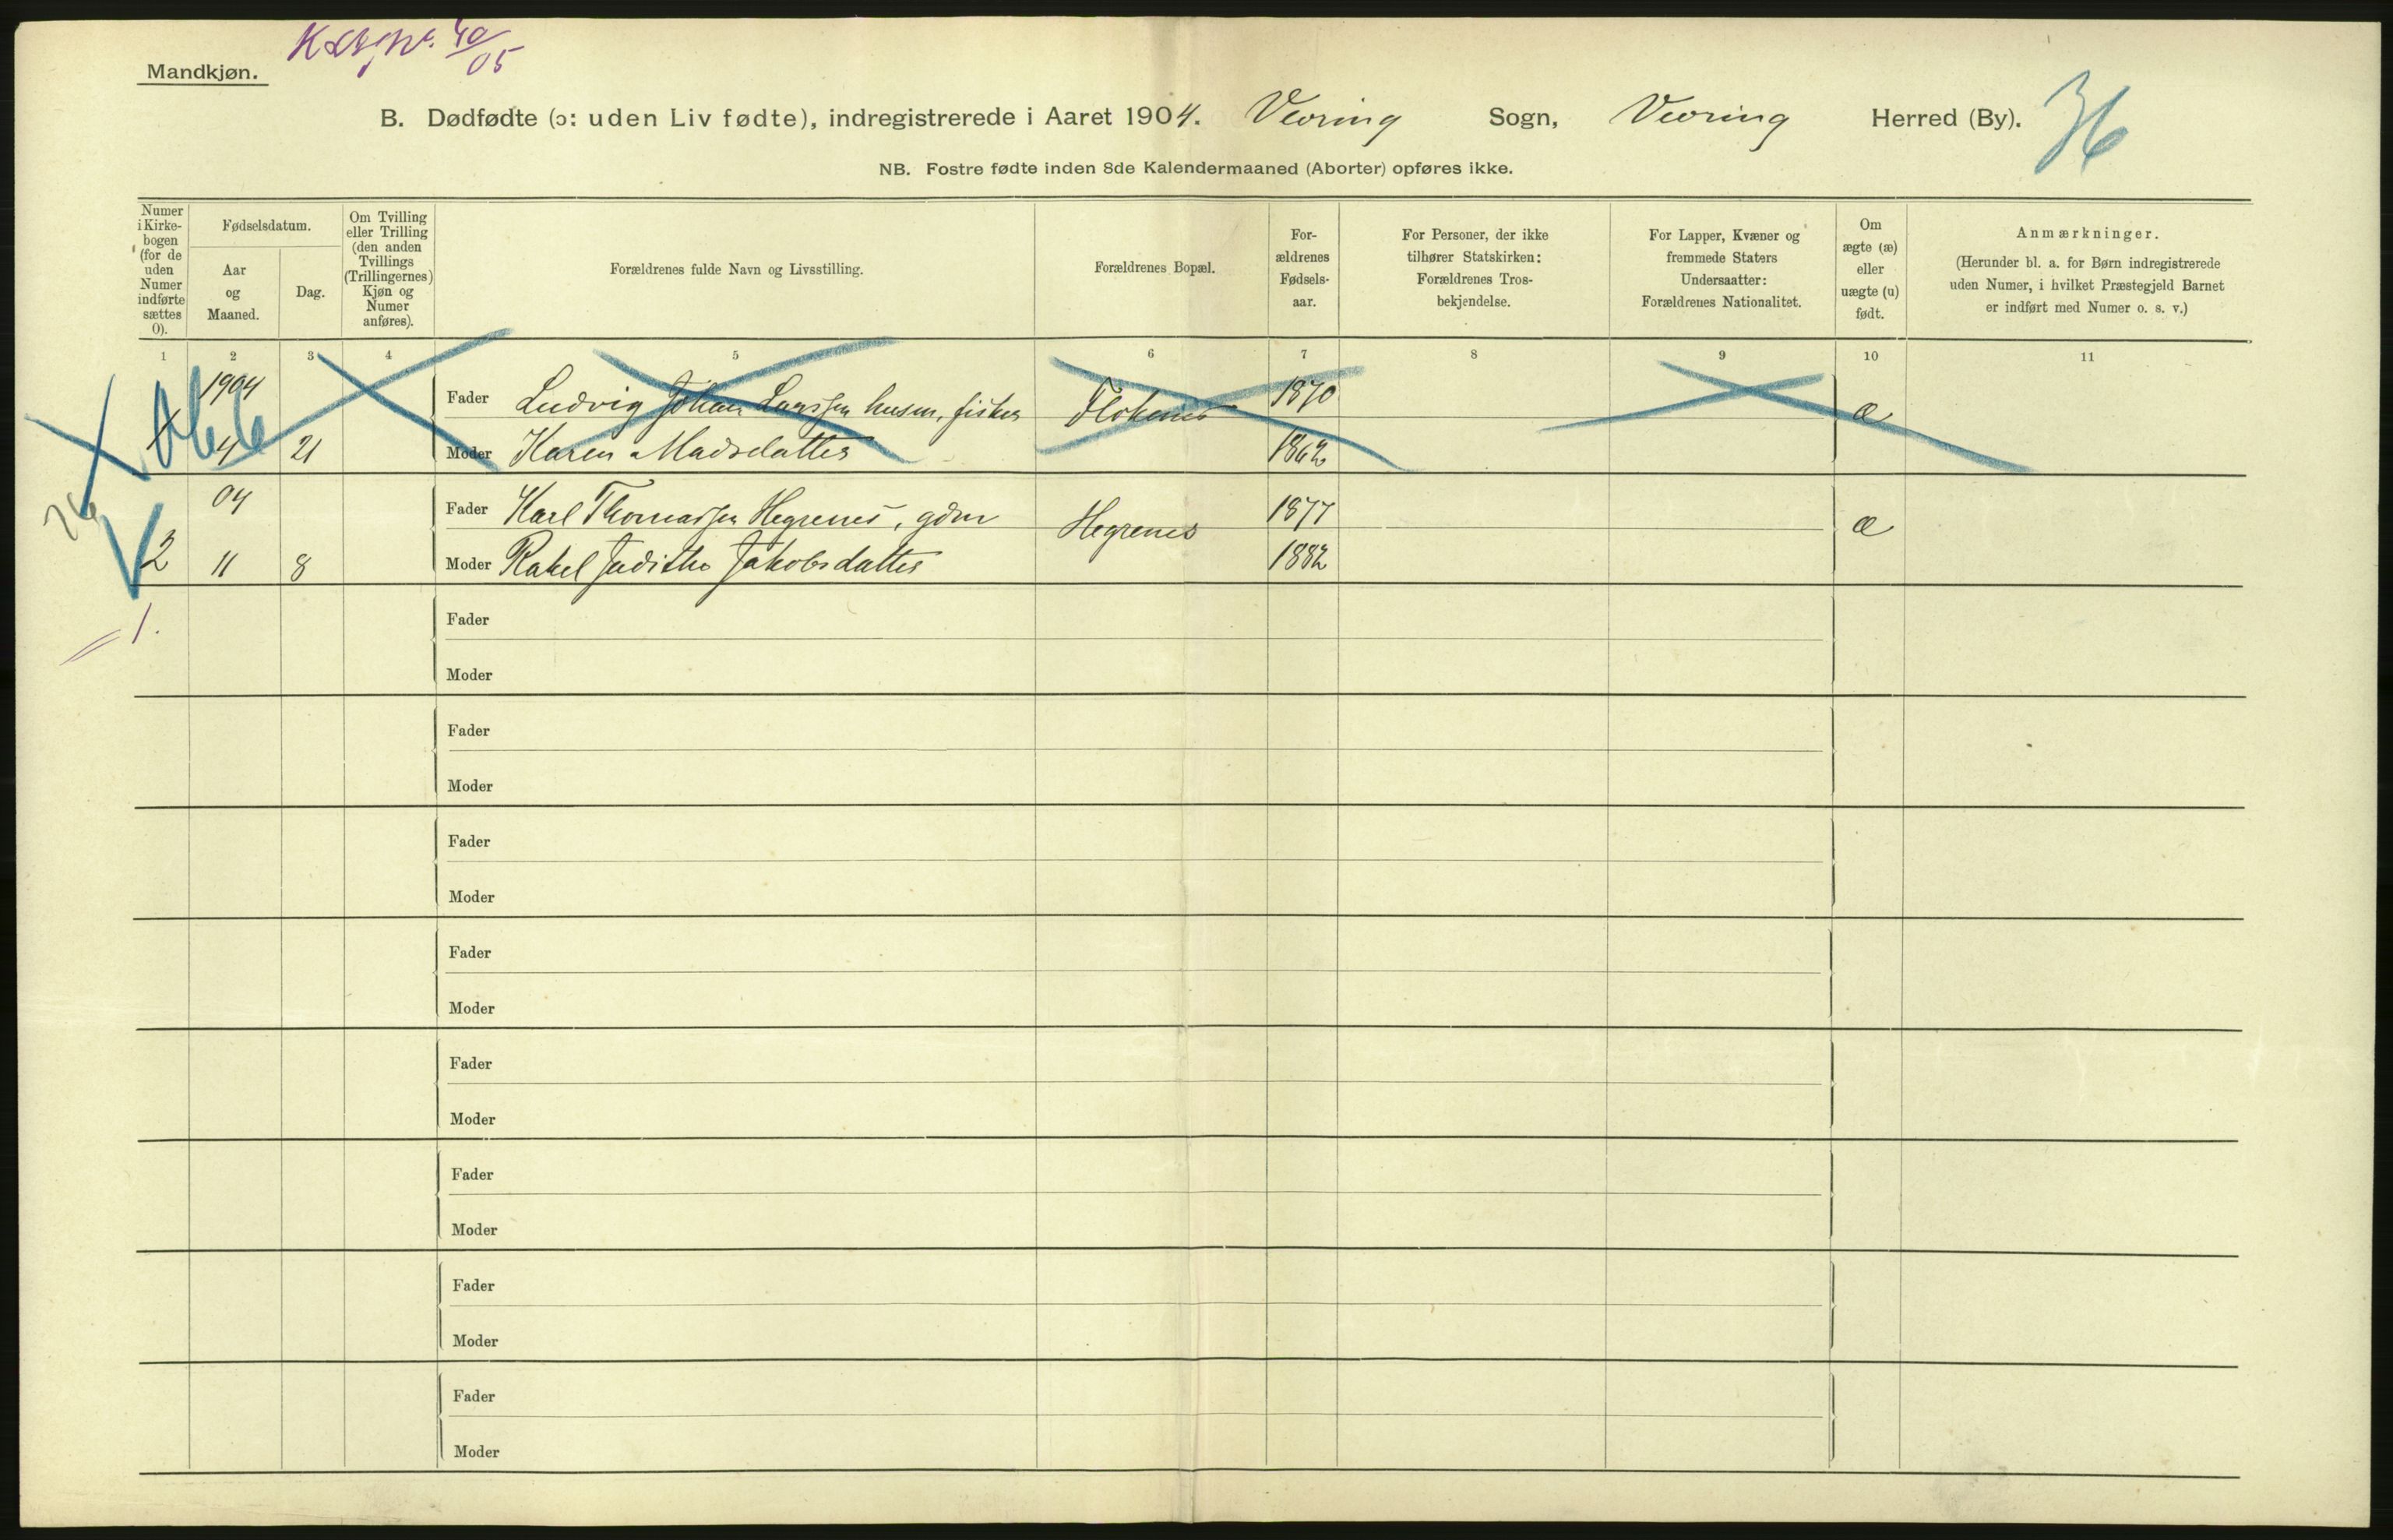 Mandkjøn.
40/05
B. Dødfødte (ɔ: uden Liv fødte), indregistrerede i Aaret 1904. Vevring Sogn, Vevring Herred (By).
36
NB. Fostre fødte inden 8de Kalendermaaned (Aborter) opføres ikke.
Numer
i Kirke-
bogen
(for de
uden
Numer
indførte
sættes
0).
Fødselsdatum.
Aar
og
Maaned.
Dag.
Om Tvilling
eller Trilling
(den anden
Tvillings
(Trillingernes)
Kjøn og
Numer
anføres).
Forældrenes fulde Navn og Livsstilling.
Forældrenes Bopæl.
For-
ældrenes
Fødsels-
aar.
For Personer, der ikke
tilhører Statskirken:
Forældrenes Tros-
bekjendelse.
For Lapper, Kvæner og
fremmede Staters
Undersaatter:
Forældrenes Nationalitet.
Om
ægte (æ)
eller
uægte (u)
født.
Anmærkninger.
(Herunder bl. a. for Børn indregistrerede
uden Numer, i hvilket Præstegjeld Barnet
er indført med Numer o. s. v.)
1 2 3 4 5 6 7 8 9 10 11
1904
Fader Ludvig Johan Larssen husm, fisker Flokenes 1870 æ
4 21 Moder Karen Madsdatter 1862
04
Fader Karl Thomassen Hegrenes, gdm Hegrenes 1877 æ
2 11 8 Moder Rakel Judithe Jakobsdatter 1882
1.
Fader
Moder
Fader
Moder
Fader
Moder
Fader
Moder
Fader
Moder
Fader
Moder
Fader
Moder
Fader
Moder